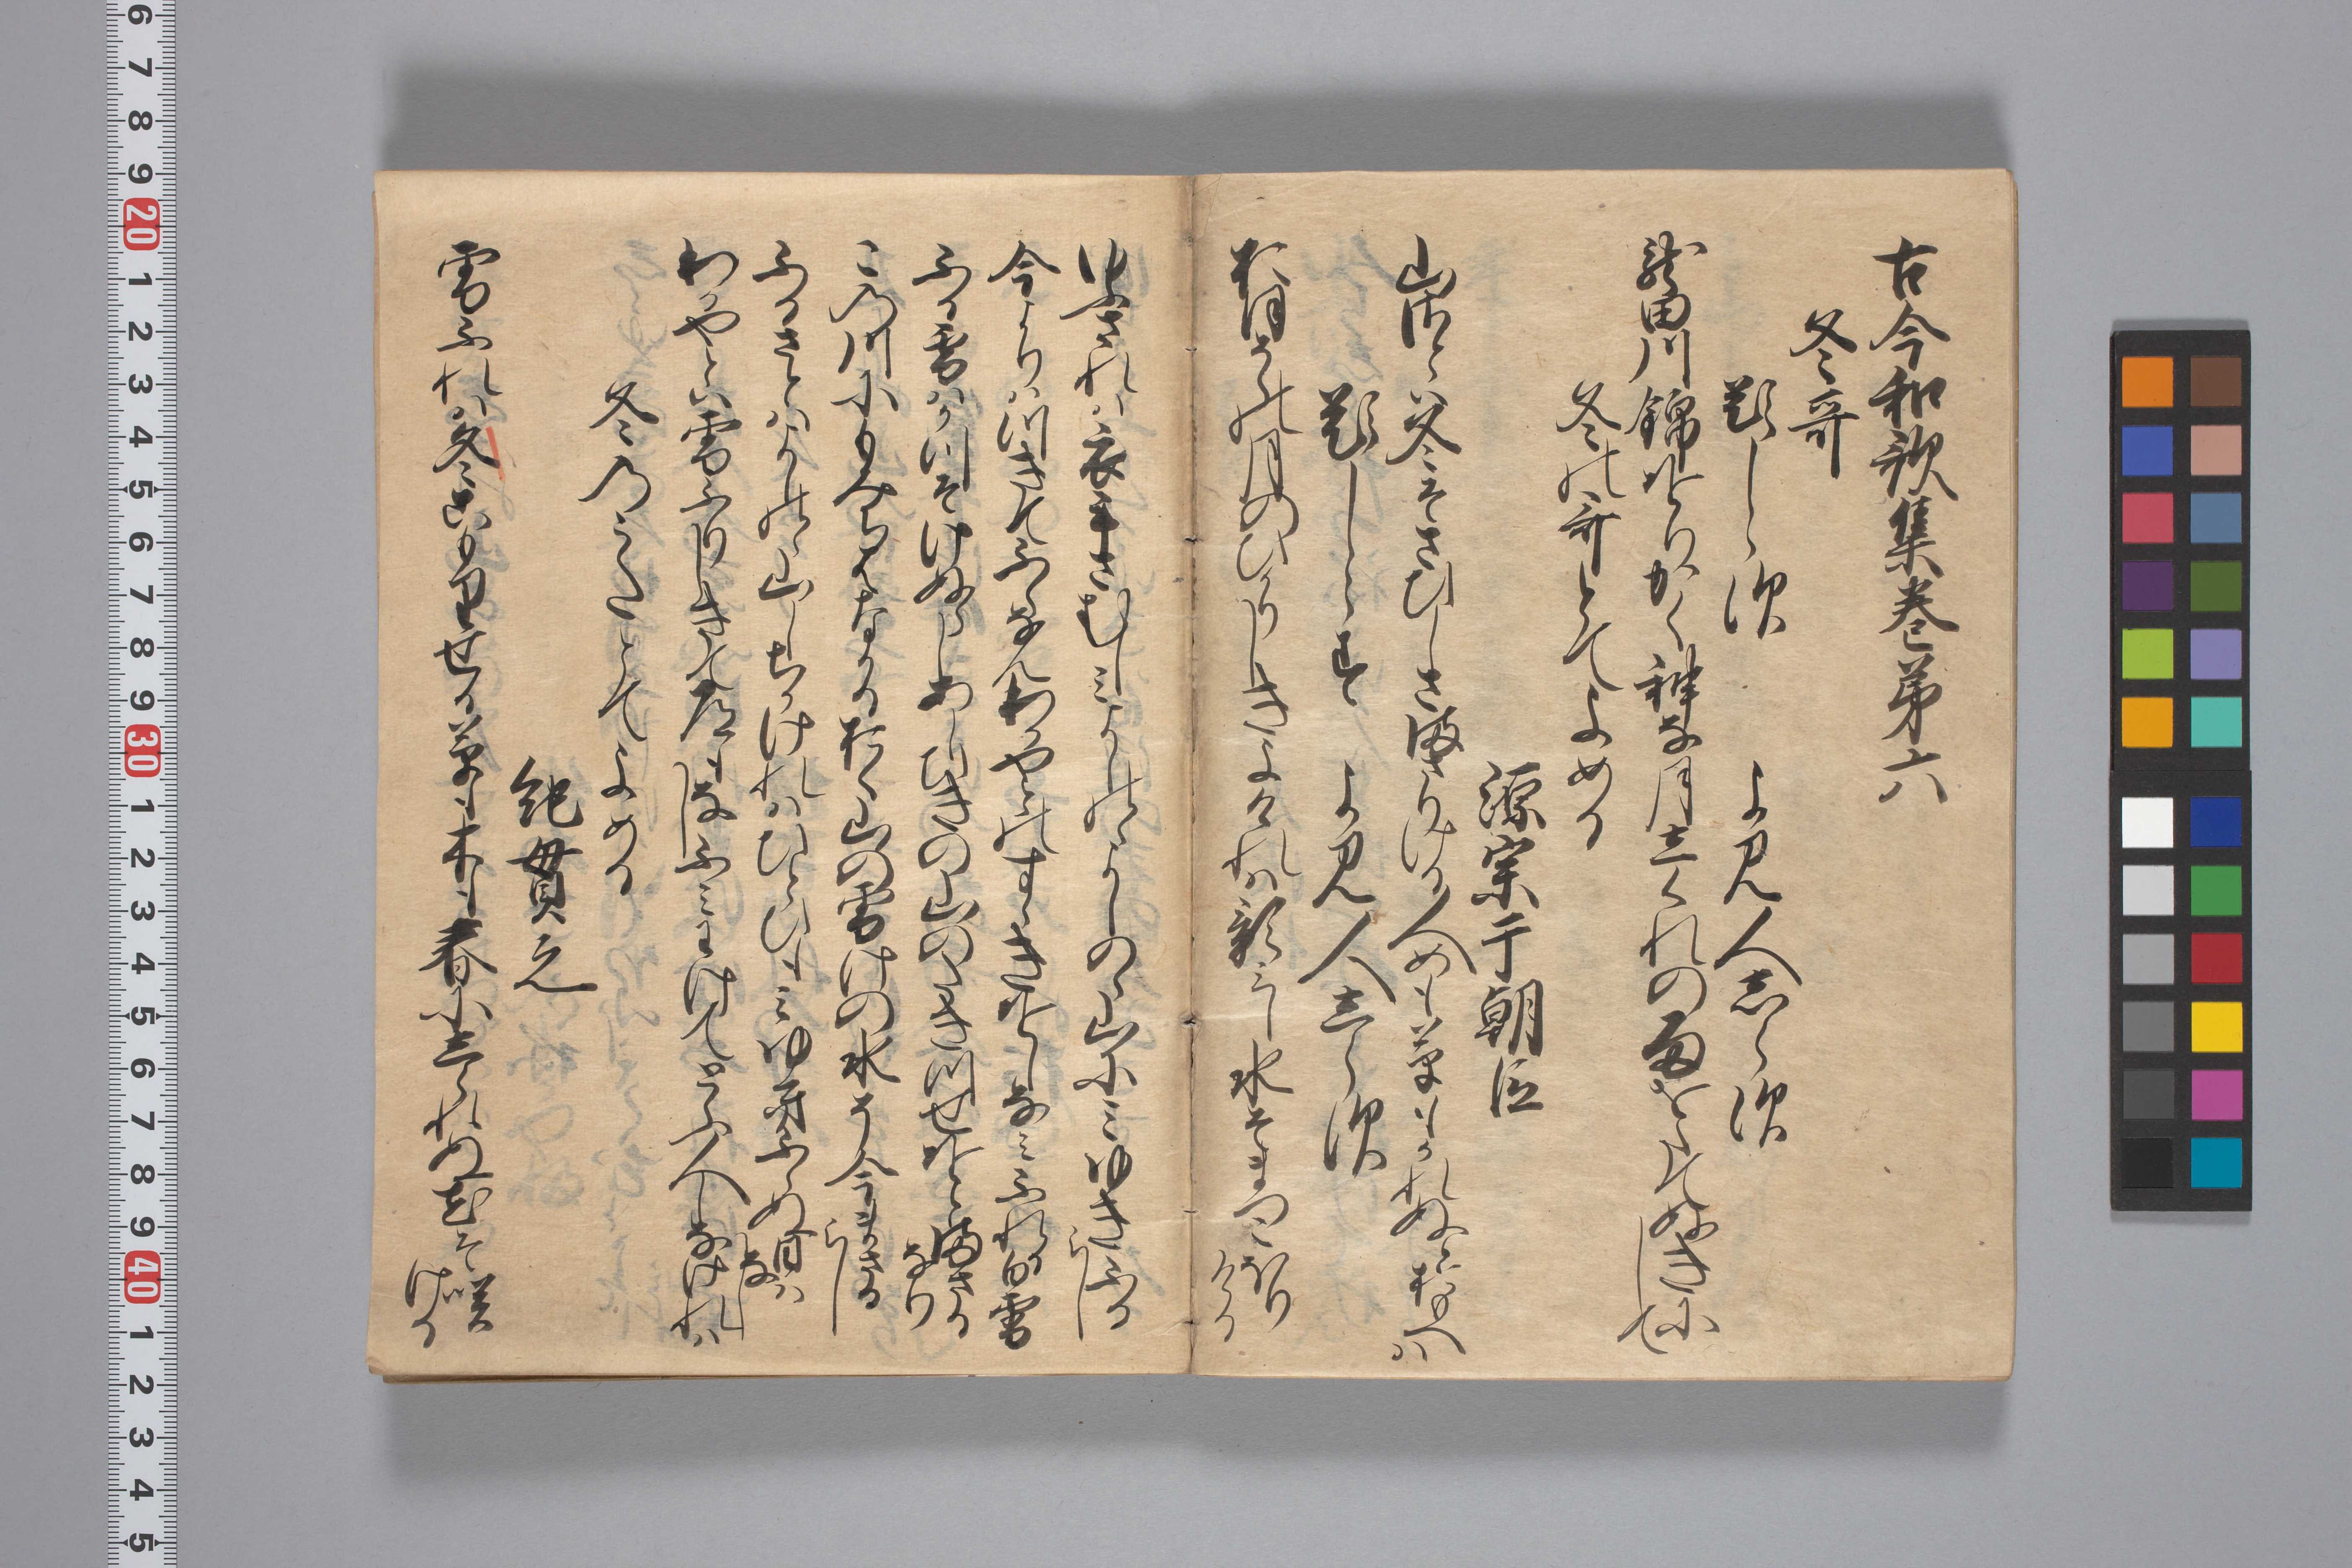 古今和歌集巻第六
冬哥
題しらす
よみ人しらす
龍田川錦おりかく神な月しくれの雨をたてぬきにして
冬の哥とてよめる
源宗于朝臣
山里は冬そさひしさまさりける人めも草もかれぬとおもへは
題しらす
よみ人しらす
おほそらの月のひかりしきよけれは影みし水そまつこほりける
ゆふされは衣手さむしみよしののよしのの山にみゆきふるらし
今よりはつきてふらなんわかやとのすすきをしなみふれる白雪
ふる雪はかつそけぬらしあしひきの山のたきつせをとまさるなり
この川にもみちはなかるおく山の雪けの水そ今まさるらし
ふるさとはよしのの山しちかけれはひとひもみゆきふらぬ日はなし
わかやとは雪ふりしきて道もなしふみわけてとふ人しなけれは
冬のうたとてよめる
紀貫之
雪ふれは冬こもりせる草も木も春にしられぬ花そ咲ける
6 7 8 9 20 1 2 3 4 5 6 7 8 9 30 1 2 3 4 5 6 7 8 9 40 1 2 3 4 5